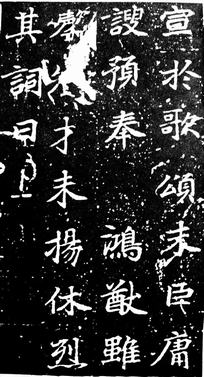 宣於歌頌末臣庸
謏預奉鴻猷雖
才未揚休烈
其詞曰